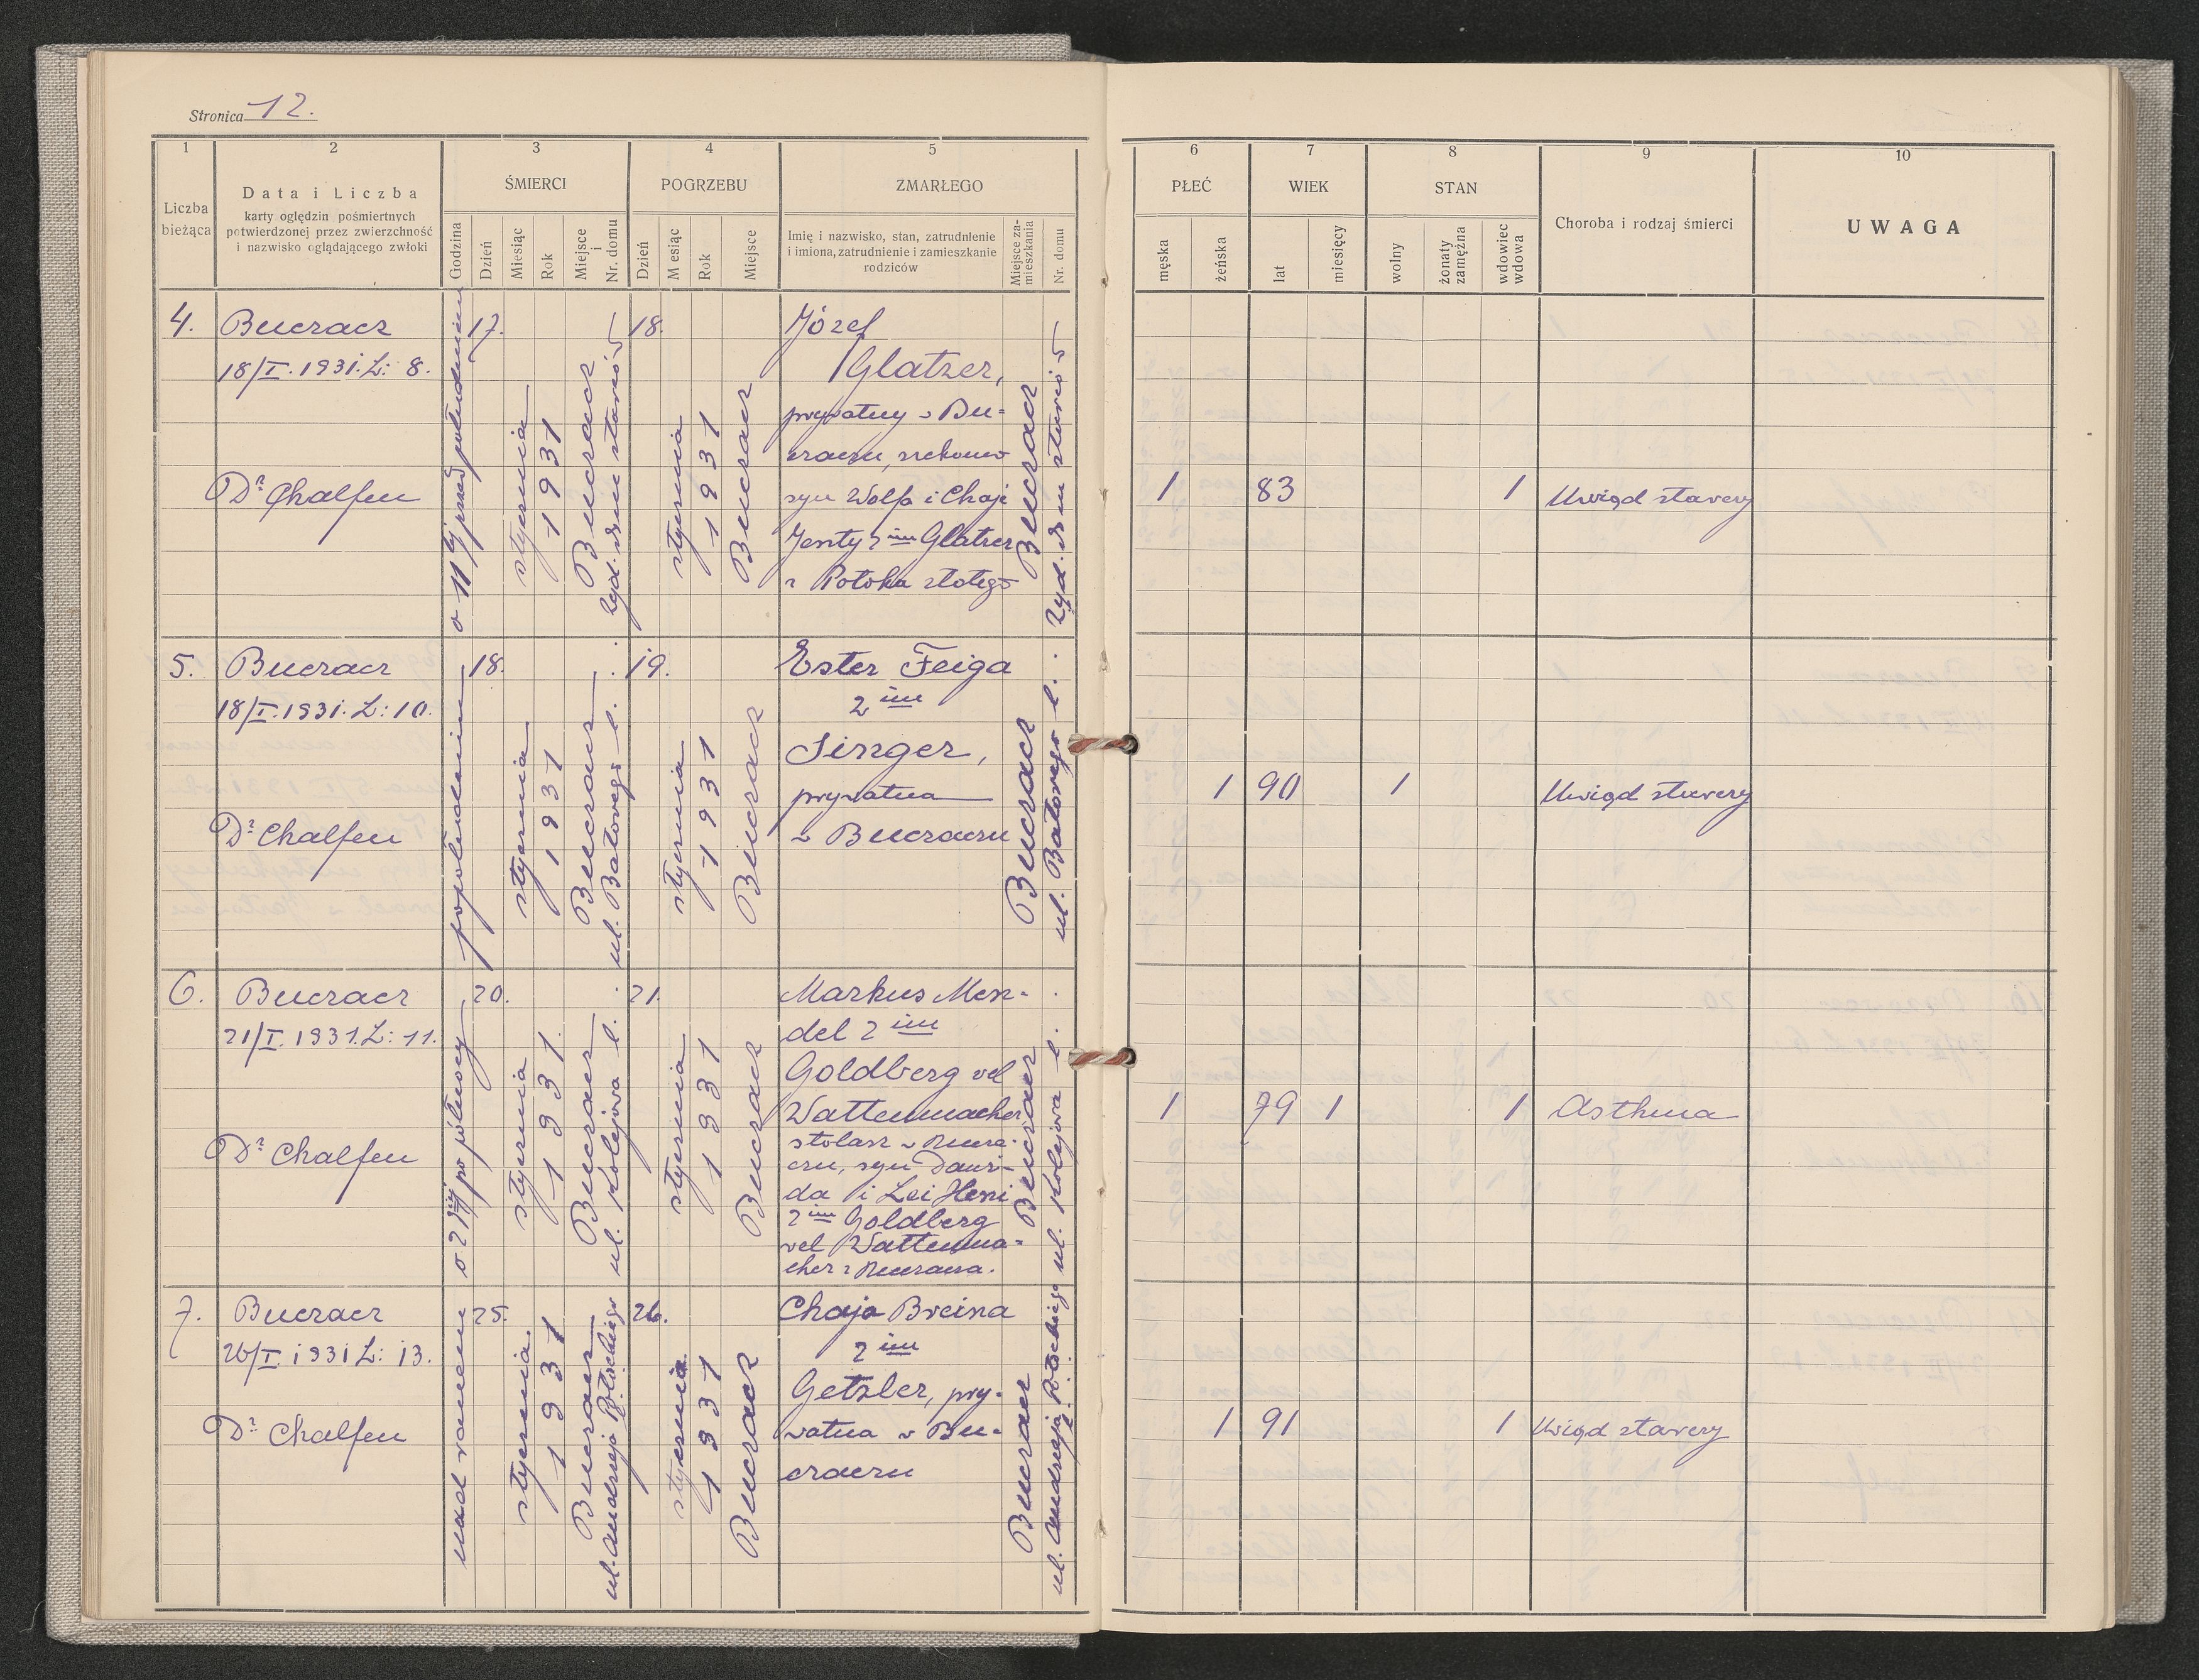 Stronica 12.
1 2 3 4 5 6 7 8 9 10
Liczba bieżąca
Data i Liczba
karty oględzin pośmiertnych
potwierdzonej przez zwierzchność
i nazwisko oglądającego zwłoki
ŚMIERCI
Godzina
Dzień
Miesiąc
Rok
Miejsce i Nr. domu
POGRZEBU
Dzień
M esiąc
Rok
Miejsce
ZMARŁEGO
Imię i nazwisko, stan, zatrudnienie
i imiona, zatrudnienie i zamieszkanie
rodziców
Miejsce za-
mieszkania
Nr. domu
PŁEĆ
męska
żeńska
WIEK
lat
miesięcy
STAN
wolny
żonaty
zamężna
wdowiec
wdowa
Choroba i rodzaj śmierci
UWAGA
4.
Buczacz
18/I. 1931. L: 8.
Dr Chalfen
o 11 tej przed południem
17.
stycznia
1931
Buczacz
żyd. dom starców
18.
stycznia
1931
Buczacz
Józef
Glatzer,
prywatny w Bu-
czaczu,
syn Wolfa i Chaji
Jenty 2 im Glatzer
z Potoka złotego
Buczacz
żyd. dom starców
1
83
1
Uwiąd starczy
5.
Buczacz
18/I. 1931. L: 10.
Dr Chalfen
popołudniu
18.
stycznia
1931
Buczacz
ul. Batorego l.
19.
stycznia
1931
Buczacz
Ester Feiga
2 im
Singer,
prywatna
w Buczaczu
Buczacz
ul. Batorego l.
1
90
1
Uwiąd starczy
6.
Buczacz
21/I. 1931. L: 11.
Dr Chalfen
po północy
20.
stycznia
1931.
Buczacz
ul. Kolejowa l.
21.
stycznia
1931
Buczacz
Markus Men-
del 2 im
Goldberg vel
Wattenmacher
stolarz w Bucza-
czu, syn Dawi-
da i Lei Heni
2 im Goldberg
vel Wattenma-
cher z Buczacza.
Buczacz
ul. Kolejowa l.
1
79
1
1
Asthma
7.
Buczacz
26/I. 1931 L: 13.
Dr Chalfen
nad ranem
25.
stycznia
1931
Buczacz
ul. Andrzeja Potockiego
26.
stycznia
1931
Buczacz
Chaja Breina
2 im
Getzler, pry-
watna w Bu-
czaczu
Buczacz
ul. Andrzeja Potockiego
1
91
1
Uwiąd starczy